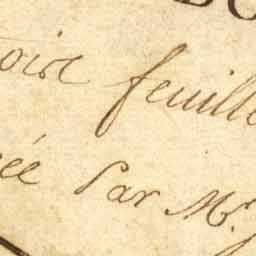 oire feuille
ée Par Mr.